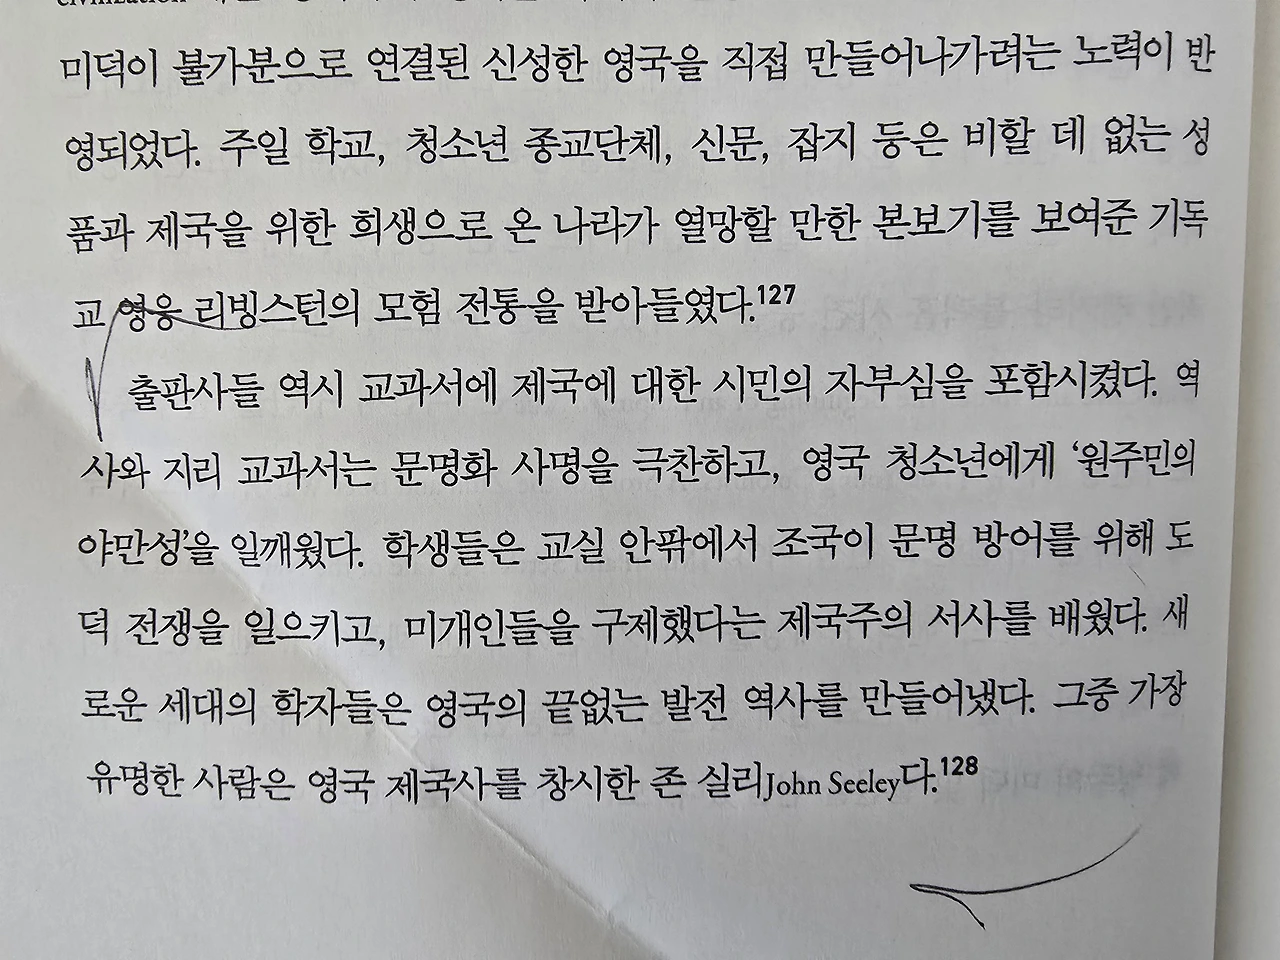 civilization
미덕이 불가분으로 연결된 신성한 영국을 직접 만들어나가려는 노력이 반
영되었다. 주일 학교, 청소년 종교단체, 신문, 잡지 등은 비할 데 없는 성
품과 제국을 위한 희생으로 온 나라가 열망할 만한 본보기를 보여준 기독
교 영웅 리빙스턴의 모험 전통을 받아들였다.127
출판사들 역시 교과서에 제국에 대한 시민의 자부심을 포함시켰다. 역
사와 지리 교과서는 문명화 사명을 극찬하고, 영국 청소년에게 ‘원주민의
야만성’을 일깨웠다. 학생들은 교실 안팎에서 조국이 문명 방어를 위해 도
덕 전쟁을 일으키고, 미개인들을 구제했다는 제국주의 서사를 배웠다. 새
로운 세대의 학자들은 영국의 끝없는 발전 역사를 만들어냈다. 그중 가장
유명한 사람은 영국 제국사를 창시한 존 실리John Seeley다.128